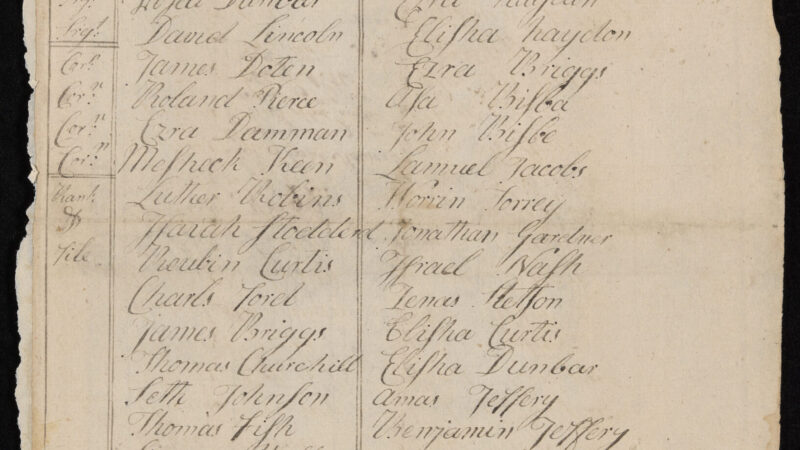 David Lincoln Elisha Haydon
James Doten Ezra Briggs
Roland Pierce Asa Bisba
Ezra Damman John Bisbe
Mesheck Keen Samuel Jacobs
Luther Robins Torrey
Isaiah Stodderd Jonathan Gardner
File Roubin Curtis Israel Nash
Charls Ford Zenas Stetson
James Briggs Elisha Curtis
Thomas Churchill Elisha Dunbar
Seth Johnson Amas Jeffery
Thomas Fish Benjamin Jeffery